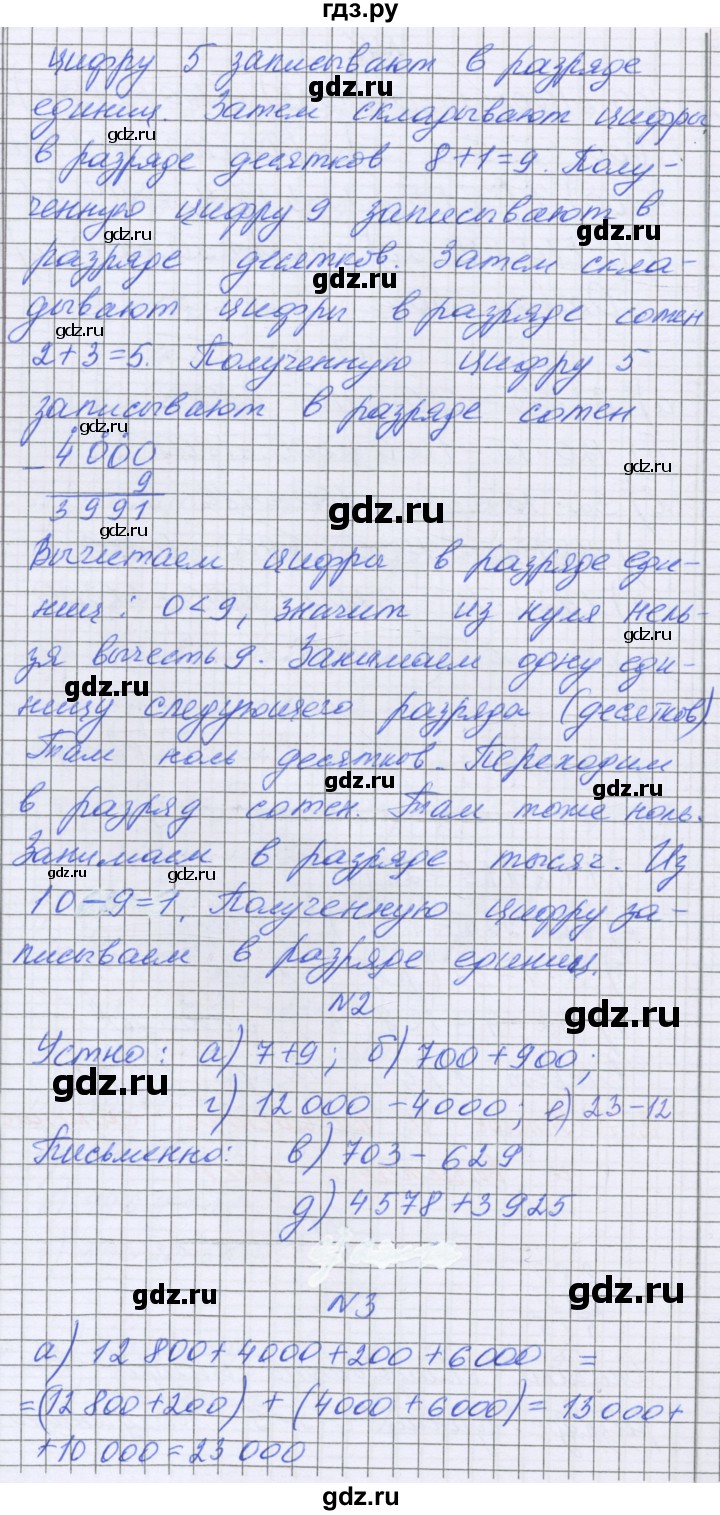 гдз.ру
цифру 5 записывают в разряде
единиц. Затем складывают цифры
в разряде десятков 8+1=9. Полу-
ченную цифру 9 записывают в
разряде десятков. Затем скла-
дывают цифры в разряде сотен
2+3=5. Полученную цифру 5
записывают в разряде сотен
- 4000
9
3991
Вычитаем цифры в разряде еди-
ниц: 0<9, значит из нуля нель-
зя вычесть 9. Занимаем одну еди-
ницу следующего разряда (десятков)
Там ноль десятков. Переходим
в разряд сотен. Там тоже ноль.
Занимаем в разряде тысяч. Из
10-9=1. Полученную цифру за-
писываем в разряде единиц.
N2
Устно: а) 7+9; б) 700+900;
г) 12000-4000; е) 23-12
Письменно: в) 703-629
д) 4578+3925
N3
а) 12 800+4000+200+6000 =
=(12 800+200) + (4000+6000)= 13000+
+10 000=23 000
gdz.ru